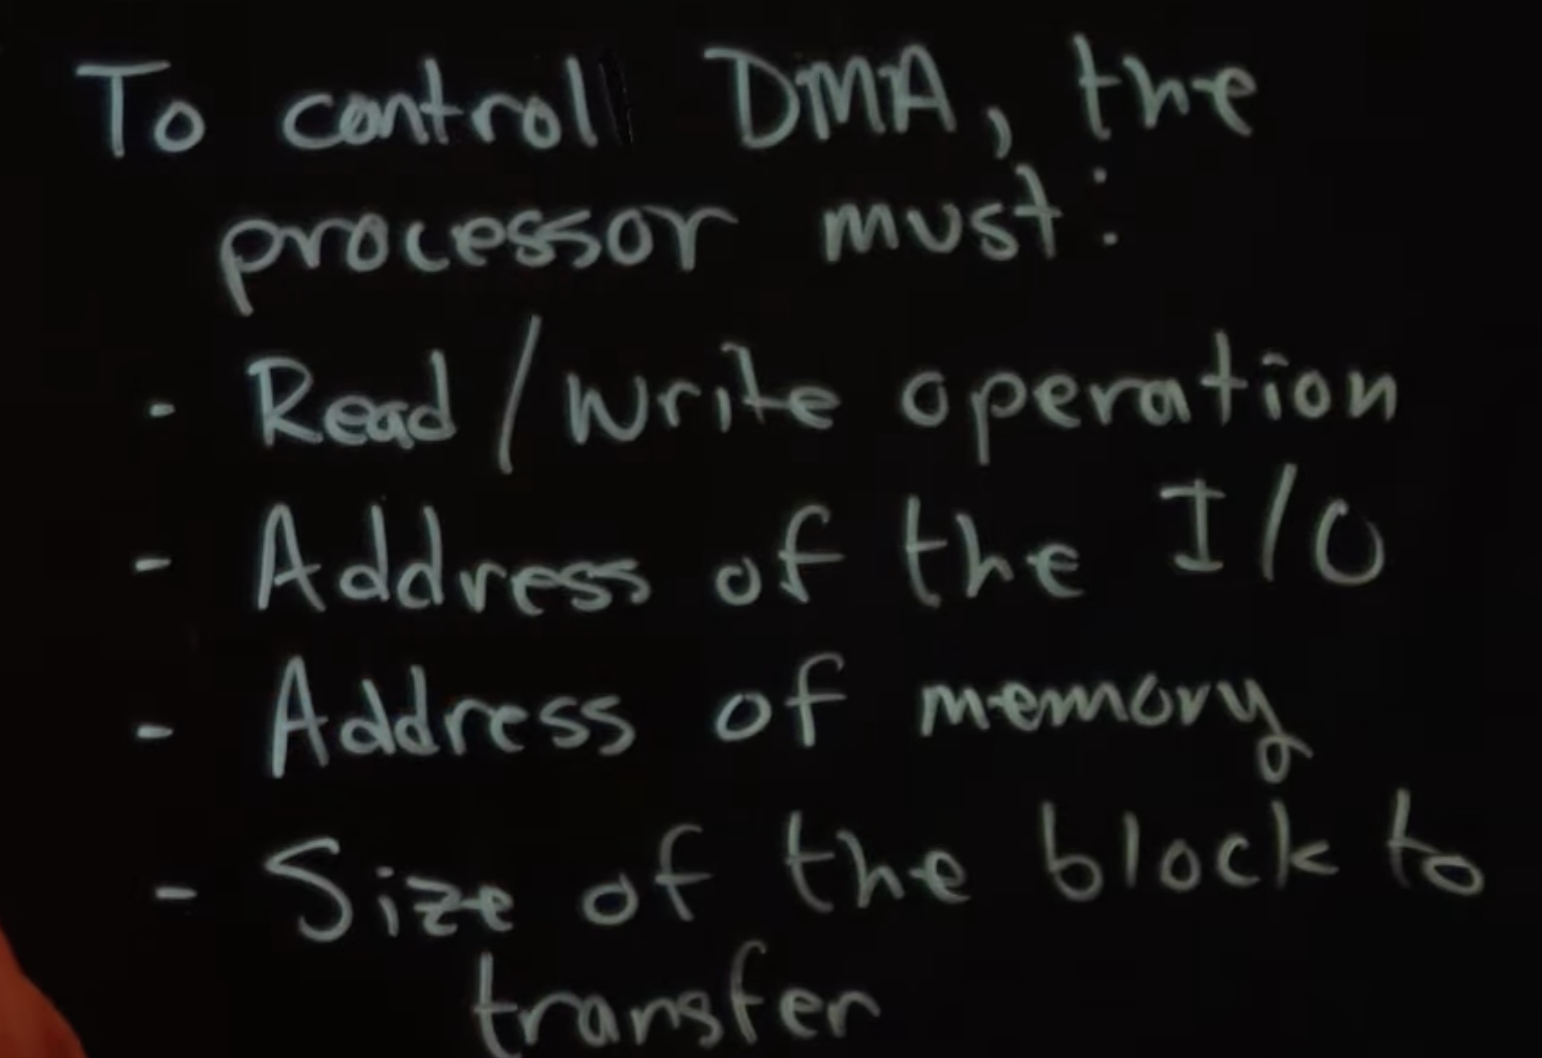 To control DMA, the
processor must:
- Read/Write operation
- Address of the I/O
- Address of memory
- Size of the block to
transfer